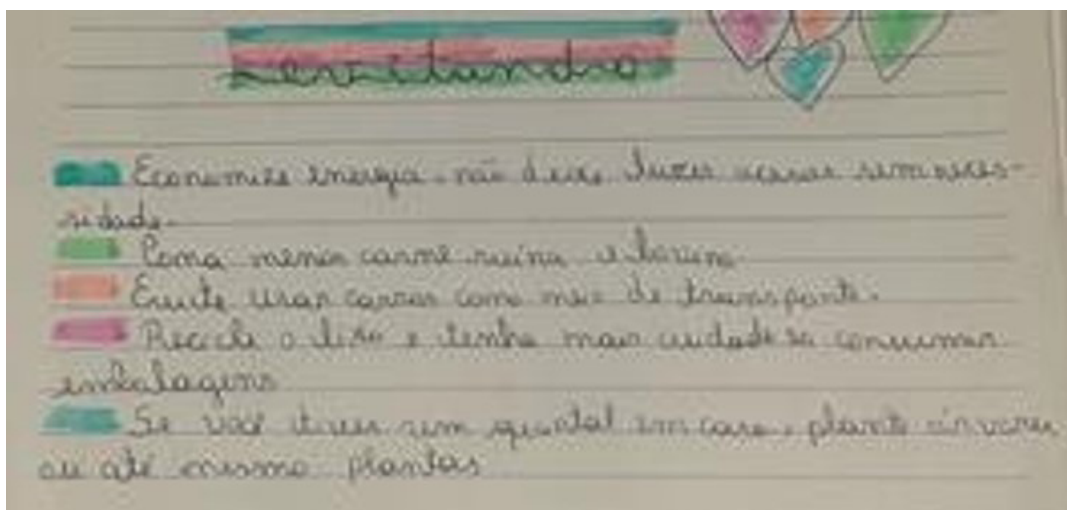 evitando
Economize energia. não deixe luzes acesas sem neces-
sidade.
Coma menos carne suína e bovina.
Evite usar carros como meio de transporte.
Recicle o lixo e tenha mais cuidado ao consumir
embalagens
Se você tiver um quintal em casa, plante árvores
ou até mesmo plantas